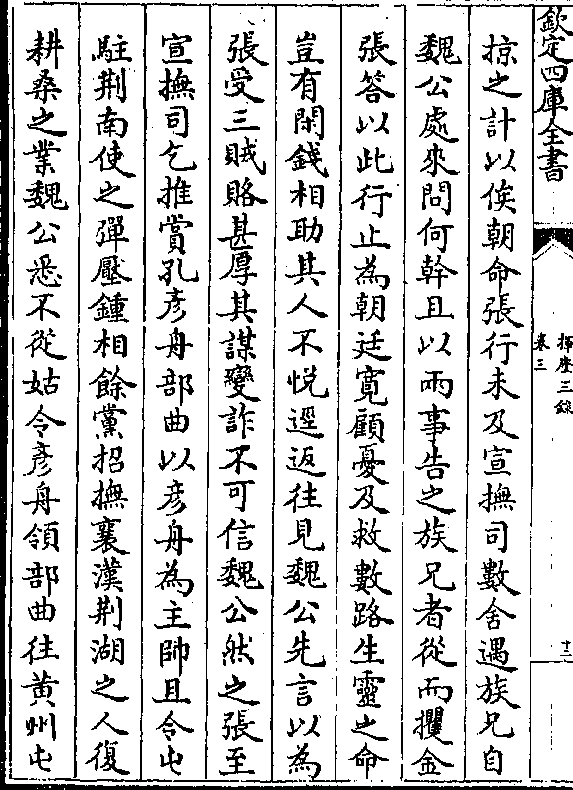 欽定四庫全書
揮麈三錄
卷三
十三
掠之計以俟朝命張行未及宣撫司數舍遇族兄自
魏公處來問何幹且以兩事告之族兄者從而攫金
張答以此行止為朝廷寛顧憂及救數路生靈之命
豈有閑錢相助其人不悅遥返往見魏公先言以為
張受三賊賂甚厚其謀變詐不可信魏公然之張至
宣撫司乞推賞孔彦舟部曲以彦舟為主帥且令屯
駐荆南使之彈壓鍾相餘黨招撫襄漢荆湖之人復
耕桑之業魏公悉不從姑令彦舟領部曲往黄州屯